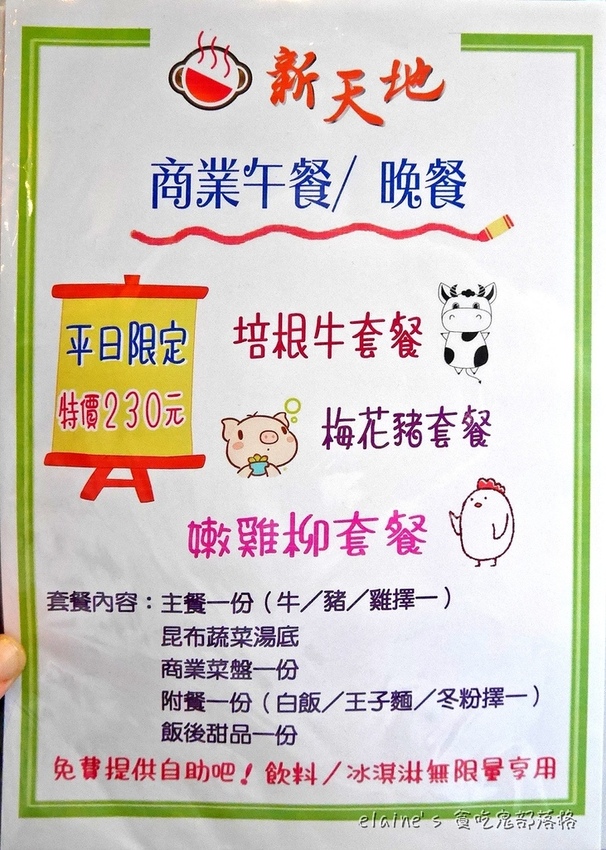 新天地
商業午餐/ 晚餐
平日限定
特價230元
培根牛套餐
梅花豬套餐
嫩雞柳套餐
套餐內容：主餐一份（牛／豬／雞擇一）
昆布蔬菜湯底
商業菜盤一份
附餐一份（白飯／王子麵／冬粉擇一）
飯後甜品一份
免費提供自助吧！飲料／冰淇淋無限量享用
elaine's 貪吃鬼部落格